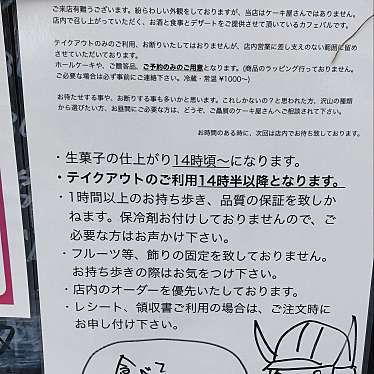 ご来店有難うございます。紛らわしい外観をしておりますが、当店はケーキ屋さんではありません。
店内で召し上がっていただく、お酒と食事とデザートをご提供させて頂いているカフェバルです。
テイクアウトのみのご利用、お断りいたしてはおりませんが、店内営業に差し支えのない範囲に留め
させていただいております。
ホールケーキや、ご贈答品、ご予約のみのご用意となります。(商品のラッピング行っておりません。
ご必要な場合は必ず事前にご連絡下さい。冷蔵・常温 ¥1000〜)
お待たせする事や、お断りする事も多いかと思います。これしかないの?と思われた方、沢山の種類
から選びたい方、お昼間にご必要な方は、どうぞ、ご贔屓のケーキ屋さんへご相談されて下さい。
お時間のある時に、次回は店内でお待ち致しております。
・生菓子の仕上がり14時頃〜になります。
・テイクアウトのご利用14時半以降となります。
・1時間以上のお持ち歩き、品質の保証を致しか
ねます。保冷剤お付けしておりませんので、ご
必要な方はお声かけ下さい。
・フルーツ等、飾りの固定を致しておりません。
お持ち歩きの際はお気をつけ下さい。
・店内のオーダーを優先いたしております。
・レシート、領収書ご利用の場合は、ご注文時に
お申し付け下さい。
食べて